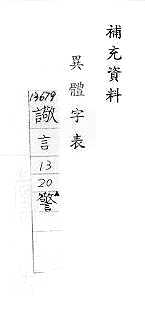 補充資料
異體字表
13679
譤
言
13
20
警